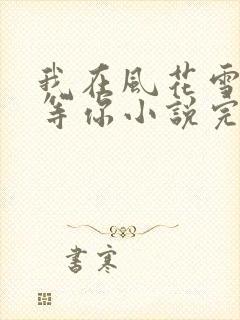 我在風花雪
等你小說完
書寒